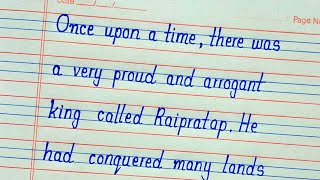 Date __/__/__
Page No
Once upon a time, there was
a very proud and arrogant
king called Raipratap. He
had conquered many lands